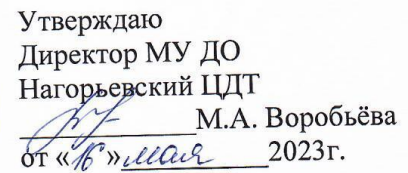 Утверждаю
Директор МУ ДО
Нагорьевский ЦДТ
____________М.А. Воробьёва
от «16»мая________2023г.